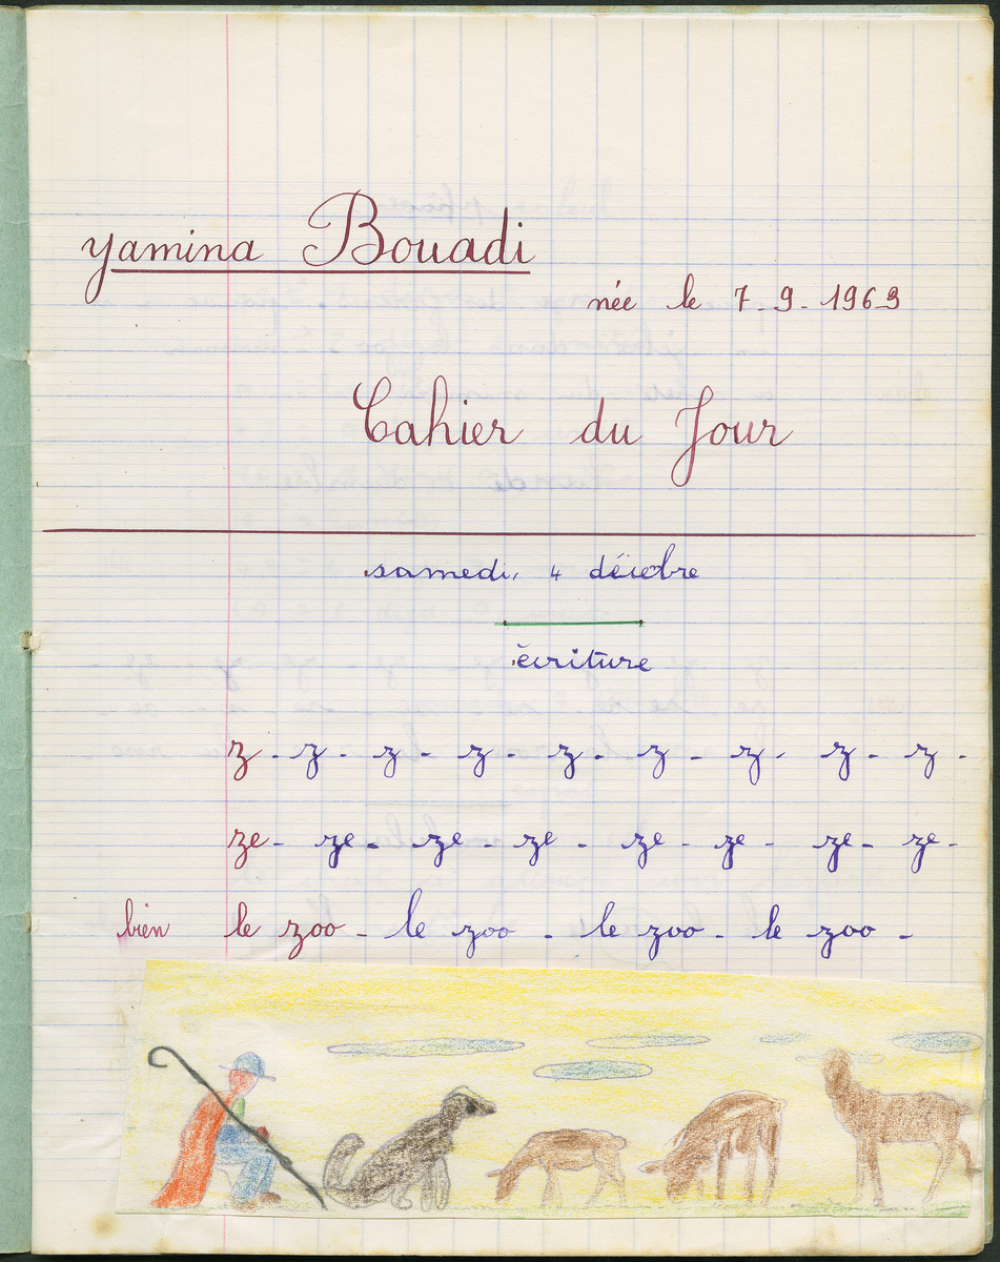 yamina Bouadi
née le 7-9-1969
Cahier du Jour
samedi, 4 décebre
écriture
z - z - z - z - z - z - z - z - z -
ze - ze - ze - ze - ze - ze - ze - ze -
bien le zoo - le zoo - le zoo - le zoo -